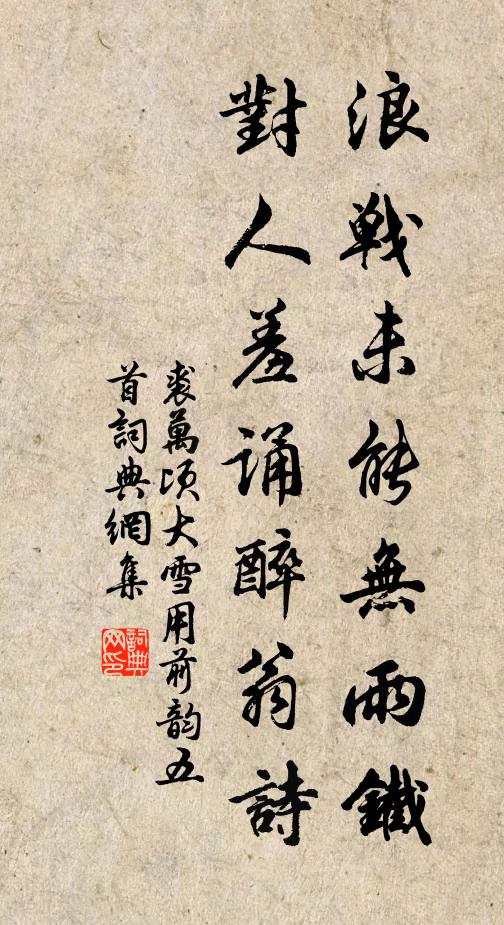 浪戰未能無兩鐵
對人羞誦醉翁詩
裘萬頃大雪用前韵五
首詞典網集
詞典
网印